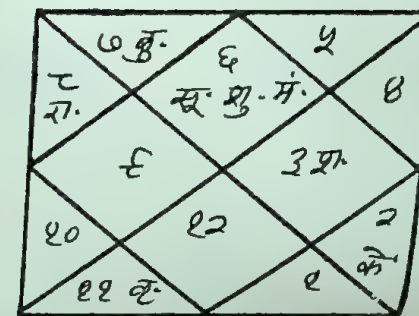 ७ बु.
६
५
८
रा.
सू. शु. मं.
४
९
३ श.
१०
१२
२
के.
११ वृ.
१